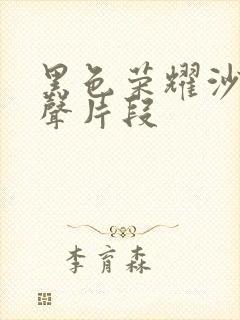 黑色荣耀沙
聲片段
李育森